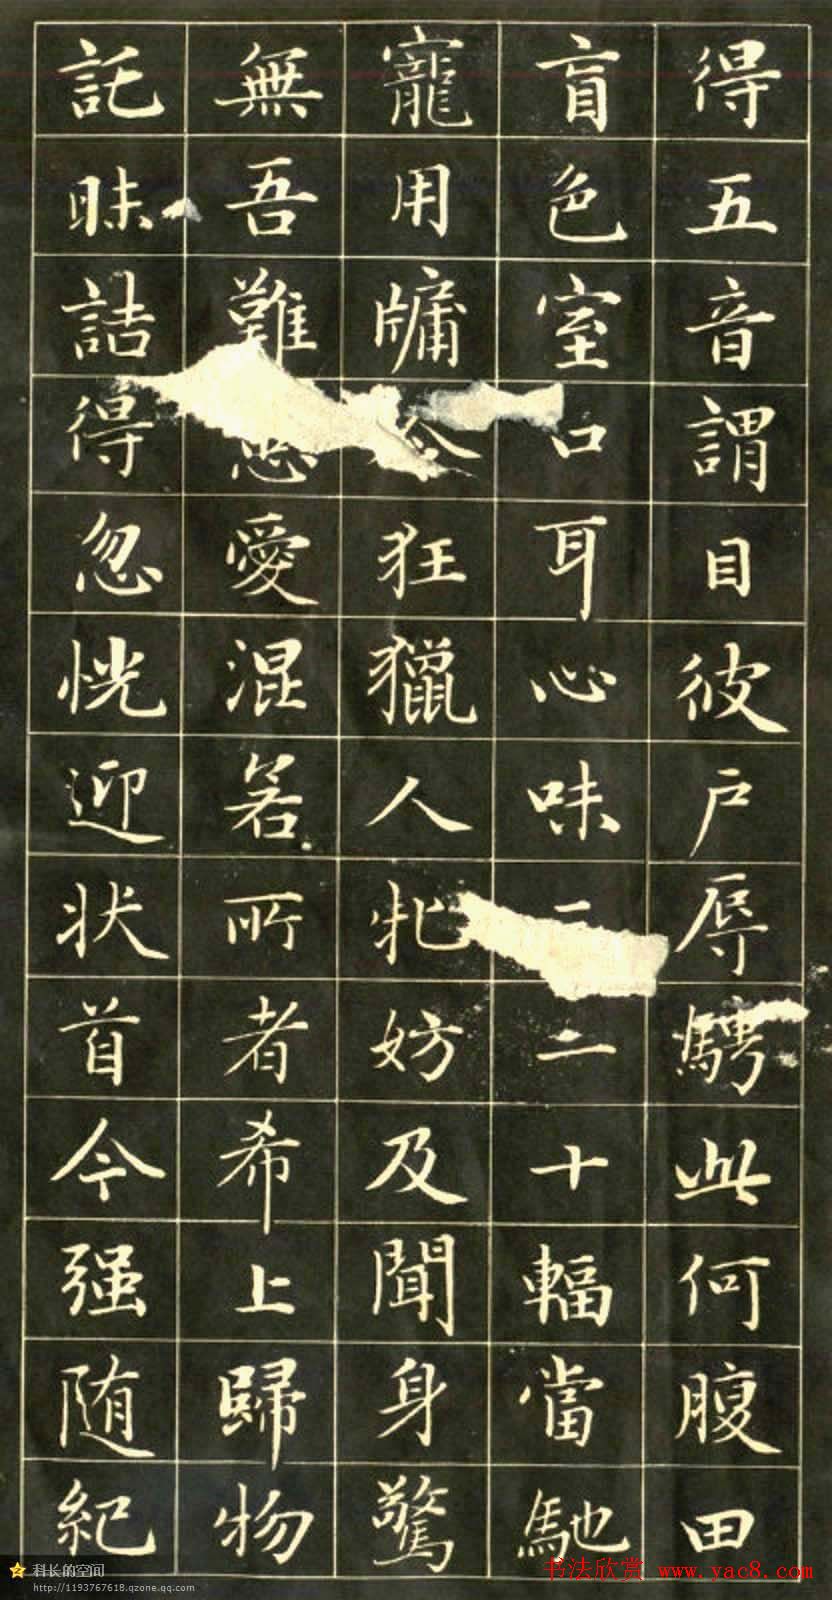 得五音謂目彼戶辱騁此何腹田
盲色室口耳心味二十輻當馳
寵用牗狂獵人牝妨及聞身驚
無吾難惡愛混若所者希上歸物
託昧詰得忽恍迎状首今强随紀
科长的空间
http://1193767618.qzone.qq.com
书法欣赏 www.yac8.com